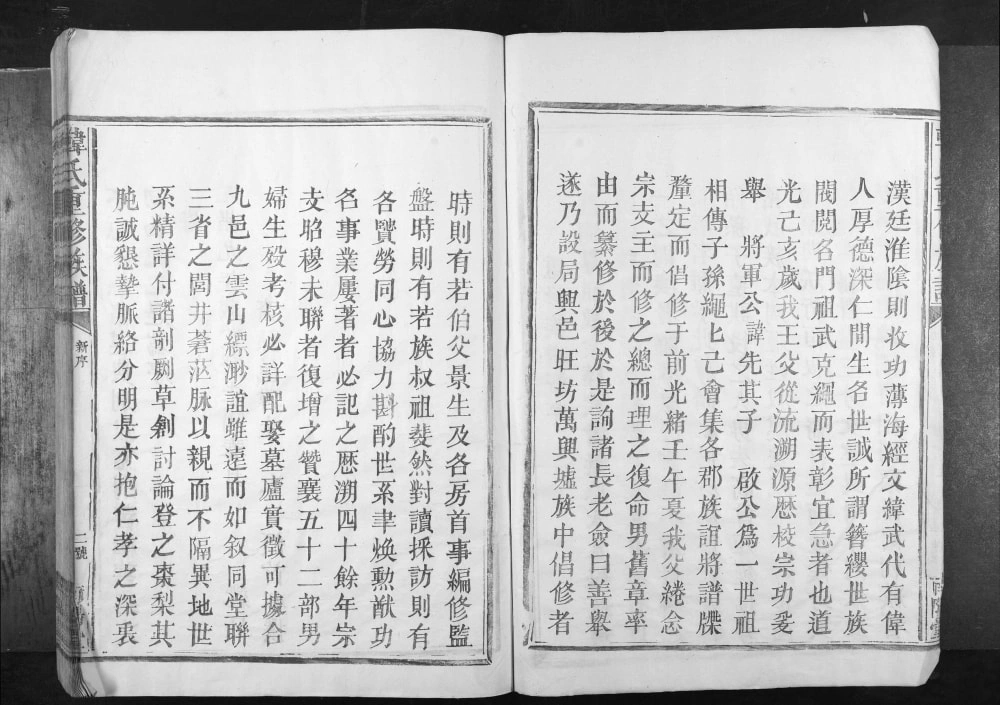 漢廷淮陰則收功薄海經文緯武代有偉
人厚德深仁閒生名世誠所謂簪纓世族
閥閱名門祖武克繩而表彰宜急者也道
光己亥歲我王父從流溯源歷校宗功爰
舉　將軍公諱先其子　啟公爲一世祖
相傳子孫繩繩己會集各郡族誼將譜牒
釐定而倡修于前光緒壬午夏我父綣念
宗支主而修之總而理之復命男舊章率
由而纂修於後於是詢諸長老僉曰善舉
遂乃設局興邑旺坊萬興墟族中倡修者
時則有若伯父景生及各房首事編修監
盤時則有若族叔祖斐然對讀採訪則有
各賢勞同心協力斟酌世系聿煥勲猷功
名事業屢著者必記之歴溯四十餘年宗
支昭穆未聯者復增之贊襄五十二部男
婦生殁考核必詳配娶墓廬實徵可據合
九邑之雲山縹渺誼雖遠而如叙同堂聯
三省之閭井蒼茫脉以親而不隔異地世
系精詳付諸剞劂草創討論登之棗梨其
肫誠懇摯脈絡分明是亦抱仁孝之深衷
韓氏重修族譜
新序
二號